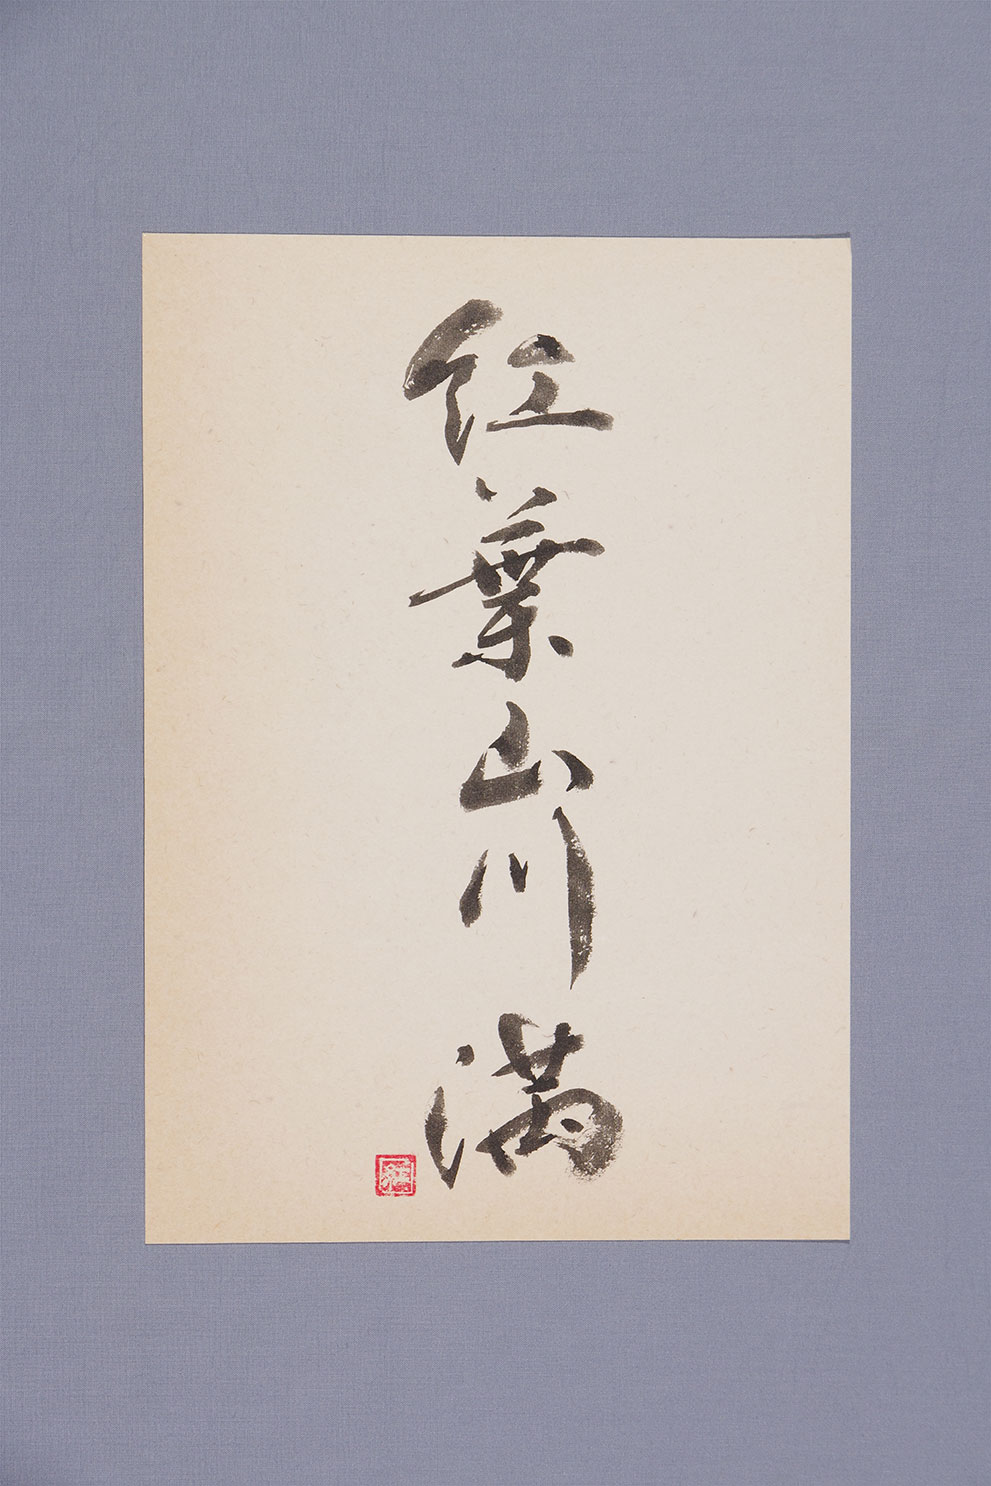 紅葉山川満